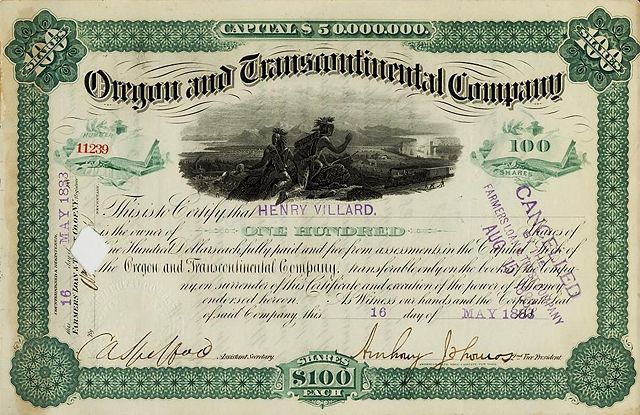 CAPITAL $ 50,000,000.
100
100
Oregon and Transcontinental Company
NUMBER
11239
100
SHARES
This is to Certify that HENRY VILLARD.
is the owner of ONE HUNDRED Shares of
One Hundred Dollars each fully paid and free from assessments in the Capital Stock of
the Oregon and Transcontinental Company, transferable only on the books of the
on surrender of this Certificate and execution of the power of Attorney
endorsed hereon. As Witness our hands and the Corporate Seal
of said Company, this 16 day of MAY 1883
Assistant Secretary
Anthony J. Thomas 2nd Vice President
SHARES
$100
EACH
16 MAY 1883
CANCELLED
FARMERS LOAN & TRUST COMPANY
AUG 15